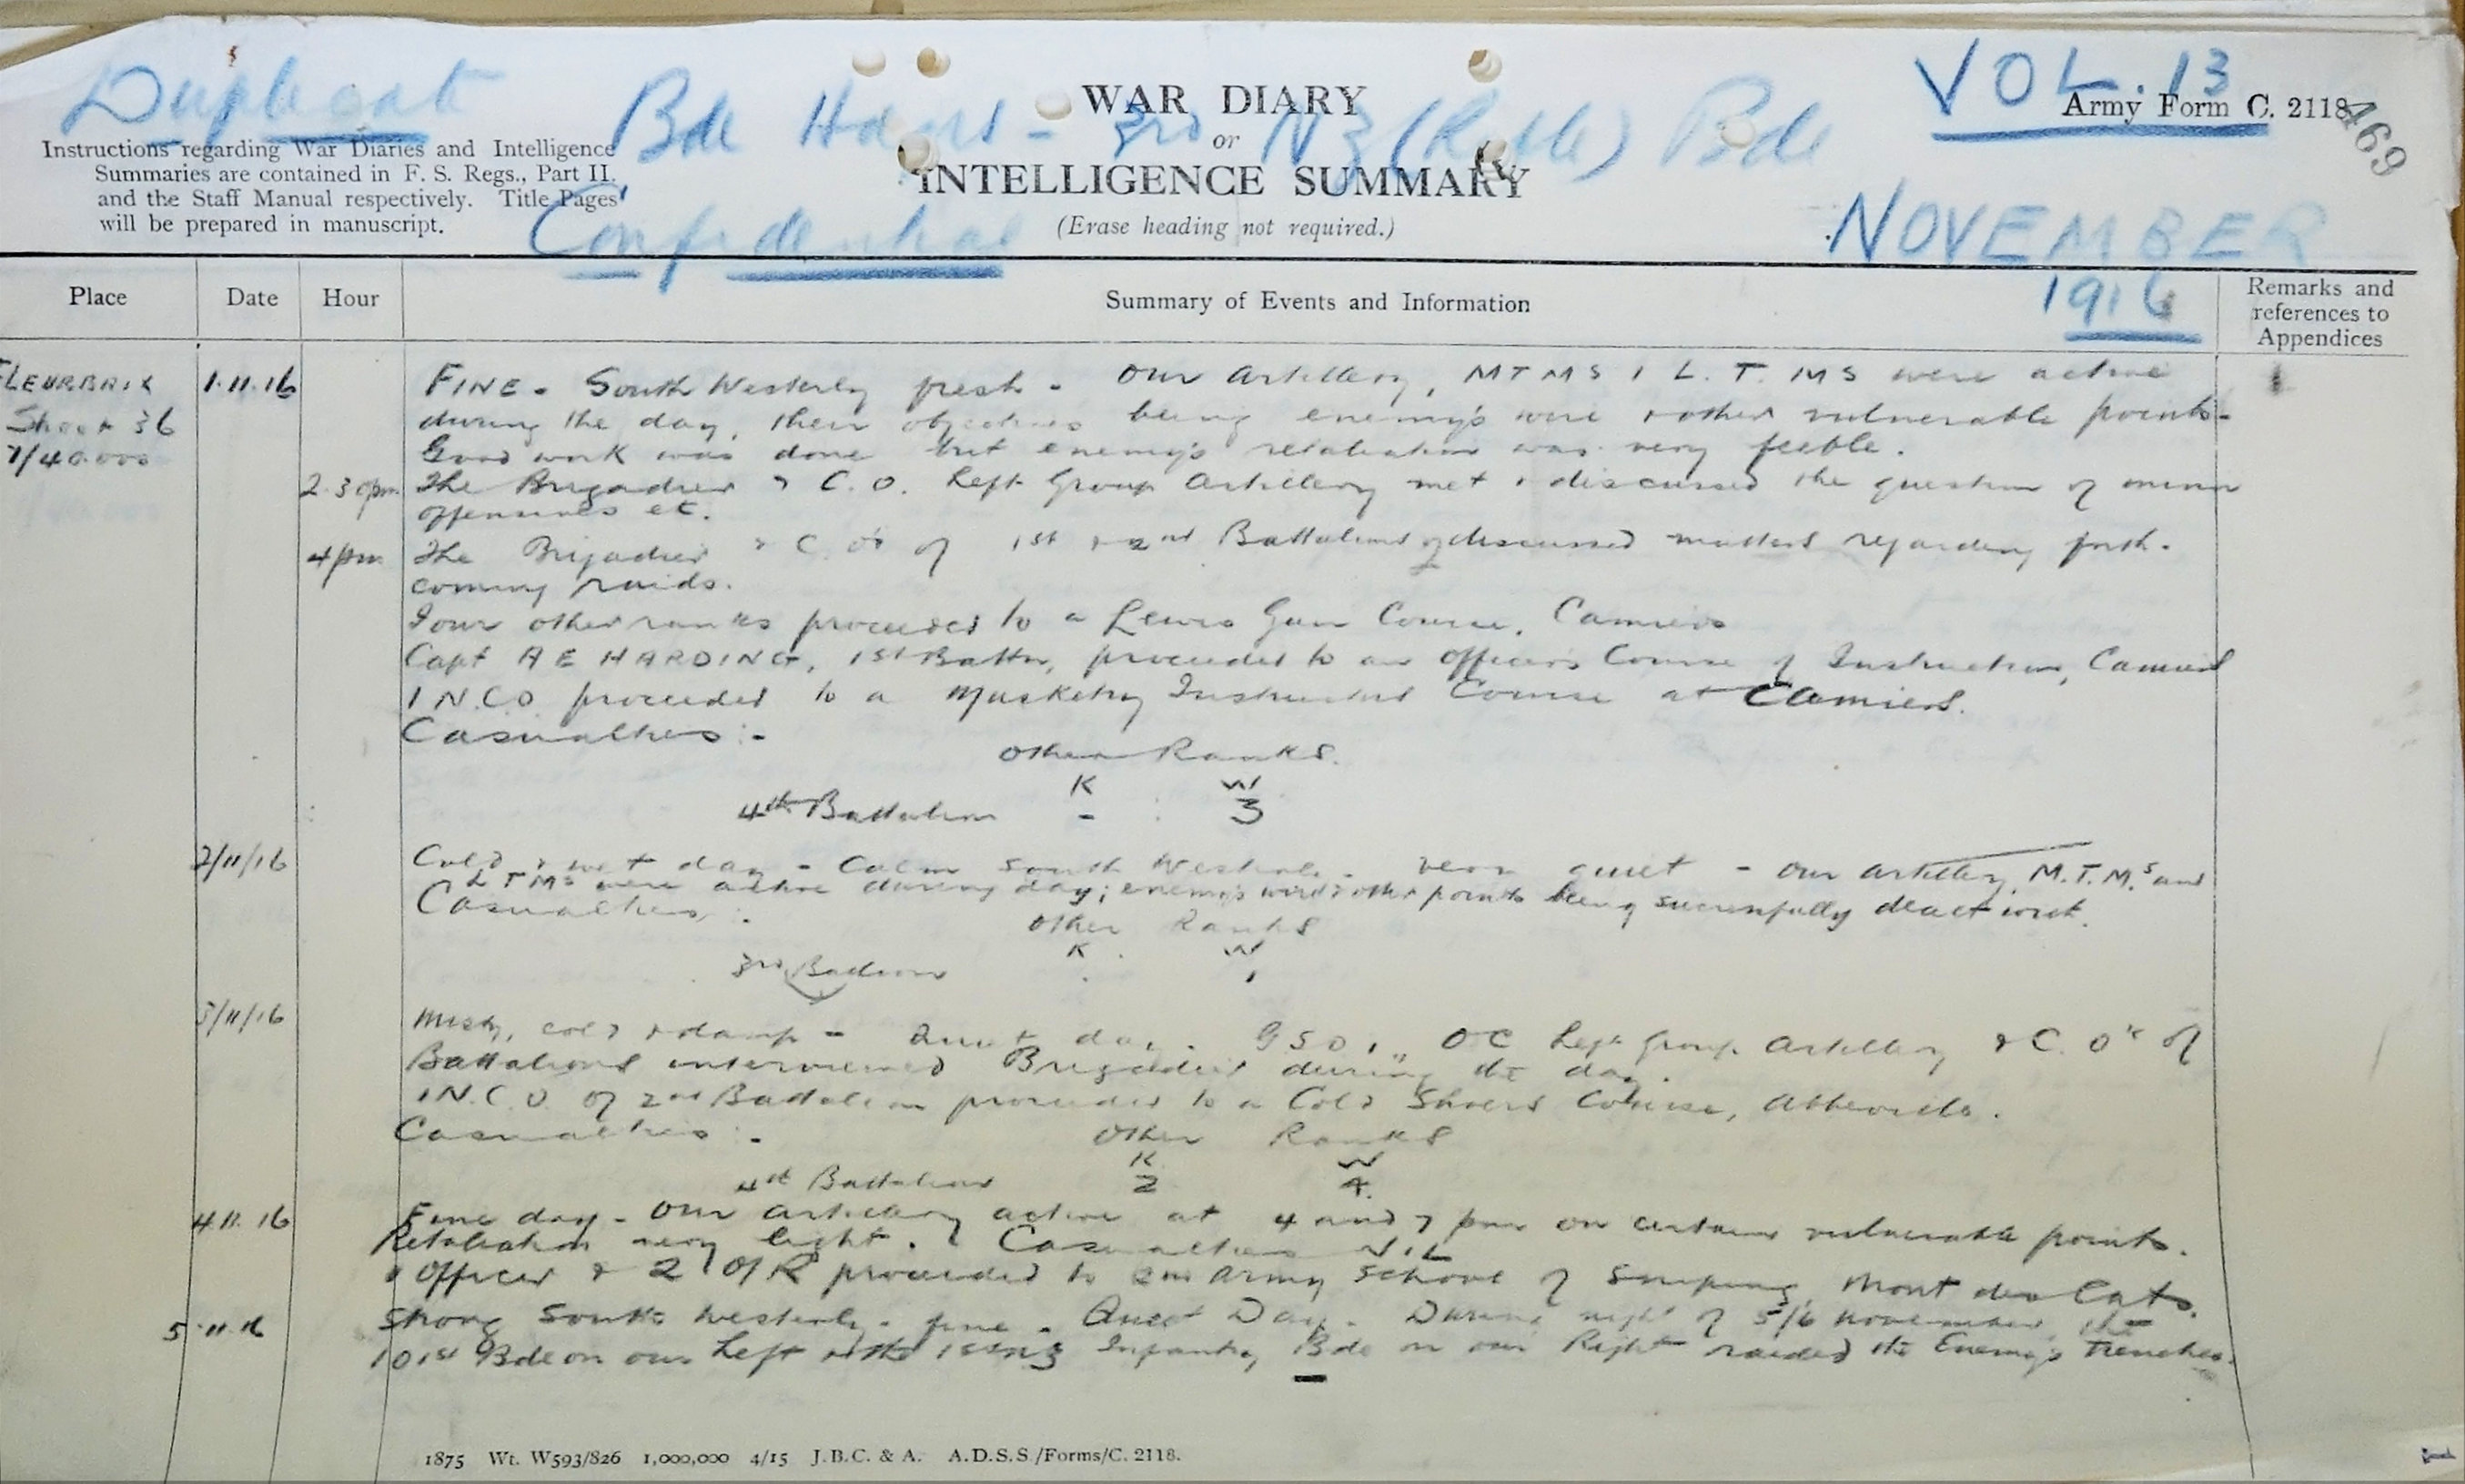 Duplicate
Bde Hdqrs - 3rd NZ (Rifle) Bde
VOL. 13
Confidential
NOVEMBER
1916
469
WAR DIARY
or
INTELLIGENCE SUMMARY
(Erase heading not required.)
Army Form C. 2118
Instructions regarding War Diaries and Intelligence
Summaries are contained in F. S. Regs., Part II.
and the Staff Manual respectively. Title Pages
will be prepared in manuscript.
Place Date Hour Summary of Events and Information Remarks and references to Appendices
FLEURBAIX 1.11.16 FINE - South Westerly fresh - Our Artillery, MTMS & L.T.MS were active
Sheet 36 during the day, their objectives being enemy's wire & other vulnerable points -
1/40.000 Good work was done but enemy's retaliation was very feeble.
2.30pm The Brigadier & C.O. Left Group Artillery met & discussed the question of minor
offensives etc.
4pm The Brigadier & C.O's of 1st & 2nd Battalions discussed matters regarding forth-
coming raids.
Four other ranks proceeded to a Lewis Gun Course, Camiers
Capt A E HARDING, 1st Battn, proceeded to an Officers Course of Instruction, Camiers
1 N.C.O. proceeded to a Musketry Instructors Course at Camiers.
Casualties :-
Other Ranks.
K W
4th Battalion - 3
2/11/16 Cold & wet day - Calm South Westerly - very quiet - Our artillery, M.T.M.s and
L.T.Ms were active during day; enemy's wire & other points being successfully dealt with.
Casualties :-
Other Ranks
K W
3rd Battalion - 1
3/11/16 Misty, cold & damp - Quiet day. GSO, OC Left Group Artillery & C.O's of
Battalions interviewed Brigadier during the day.
1 N.C.O. of 2nd Battalion proceeded to a Cold Shoers Course, Abbeville.
Casualties :-
Other Ranks
K W
4th Battalion 2 4.
4.11.16 Fine day - Our artillery active at 4 and 7 pm on certain vulnerable points.
Retaliation very light. Casualties NIL
1 Officer & 2 OR proceeded to 2nd Army School of Sniping, Mont des Cats.
5.11.16 Strong South Westerly - fine - Quiet Day - During night of 5/6 November, the
101st Bde on our Left & the 1st NZ Infantry Bde on our Right raided the Enemy's trenches.
1875 Wt. W593/826 1,000,000 4/15 J.B.C. & A. A.D.S.S./Forms/C. 2118.